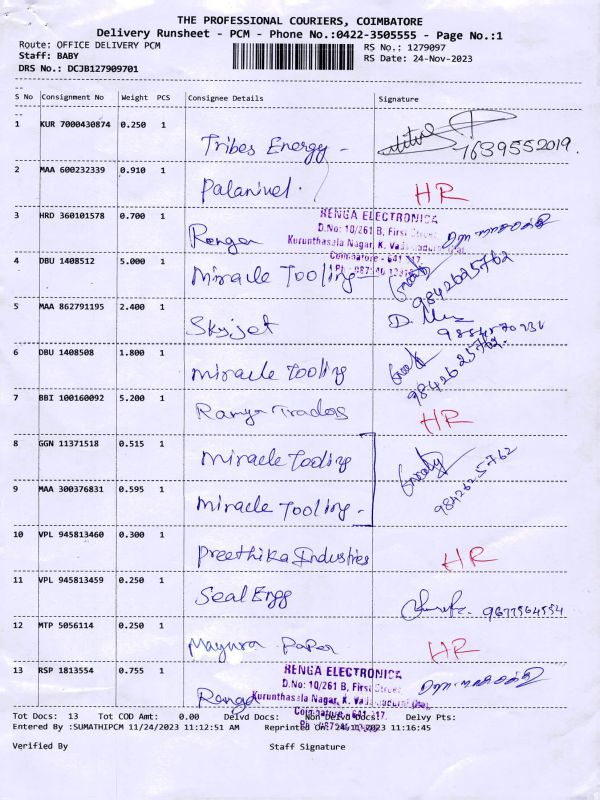 THE PROFESSIONAL COURIERS, COIMBATORE
Delivery Runsheet - PCM - Phone No.:0422-3505555 - Page No.:1
Route: OFFICE DELIVERY PCM
RS No.: 1279097
Staff: BABY
RS Date: 24-Nov-2023
DRS No.: DCJB127909701
S No Consignment No Weight PCS Consignee Details Signature
1 KUR 7000430874 0.250 1
Tribes Energy - 7639552019.
2 MAA 600232339 0.910 1
Palanivel. HR
3 HRD 360101578 0.700 1
RENGA ELECTRONICA
D.No: 10/261 B, First Street
Kurunthasala Nagar, K.
Renga
Coimbatore - 641 017.
4 DBU 1408512 5.000 1
Miracle Tooling 9842625762
5 MAA 862791195 2.400 1
Skyjet
6 DBU 1408508 1.800 1
Miracle Tooling 9842625762.
7 BBI 100160092 5.200 1
Ranga Trades HR
8 GGN 11371518 0.515 1
Miracle Tooling
9 MAA 300376831 0.595 1
Miracle Tooling - 9842625762
10 VPL 945813460 0.300 1
Preethika Industries HR
11 VPL 945813459 0.250 1
Seal Engg 9677564554
12 MTP 5056114 0.250 1
Mayura Paper HR
13 RSP 1813554 0.755 1
RENGA ELECTRONICA
D.No: 10/261 B, First Street
Renga Kurunthasala Nagar, K.
Tot Docs: 13 Tot COD Amt: 0.00 Delvd Docs: Non Delvd Docs: Delvy Pts:
Entered By :SUMATHIPCM 11/24/2023 11:12:51 AM Reprinted On: 24/11/2023 11:16:45
Verified By Staff Signature